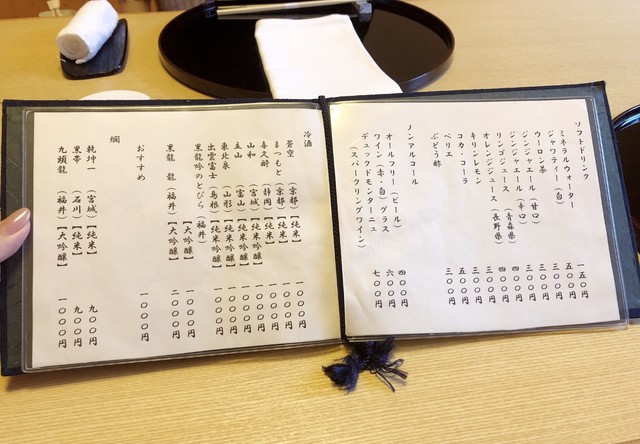 ソフトドリンク
ミネラルウォーター 一五〇円
ジャワティー(白) 五〇〇円
ウーロン茶 三〇〇円
ジンジャエール(甘口) 三〇〇円
ジンジャエール(辛口) 三〇〇円
リンゴジュース(青森県) 四〇〇円
オレンジジュース(長野県) 四〇〇円
キリンレモン 三〇〇円
コカ・コーラ 三〇〇円
ペリエ 五〇〇円
ぶどう酢 三〇〇円
ノンアルコール
オールフリー(ビール) 四〇〇円
ワイン(赤・白)グラス 六〇〇円
デュックドモンターニュ 七〇〇円
(スパークリングワイン)
冷酒
蒼空(京都)【純米】 一〇〇〇円
まつもと(京都)【純米】 一〇〇〇円
喜久醉(静岡)【純米】 一〇〇〇円
山和(宮城)【純米吟醸】 一〇〇〇円
立山(富山)【純米吟醸】 一〇〇〇円
東北泉(山形)【純米吟醸】 一〇〇〇円
出雲富士(島根)【純米吟醸】 一〇〇〇円
黒龍吟のとびら(福井)
【大吟醸】 一〇〇〇円
黒龍 龍(福井)【大吟醸】 二〇〇〇円
おすすめ 一〇〇〇円
燗
乾坤一(宮城)【純米】 九〇〇円
黒帯(石川)【純米】 九〇〇円
九頭龍(福井)【大吟醸】 一〇〇〇円